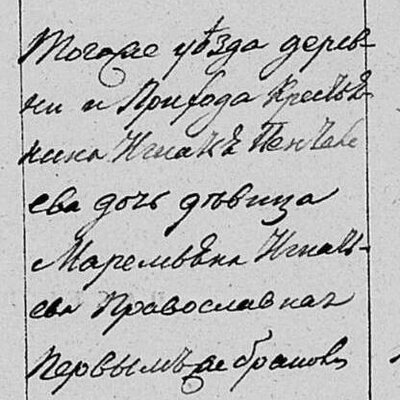 Тогоже уѣзда дерев-
ни и Прихода Крестья-
нина Игнатъ
ева дочь дѣвица
Маремьяна Игнать-
ева Православная
Первымъ же бракомъ